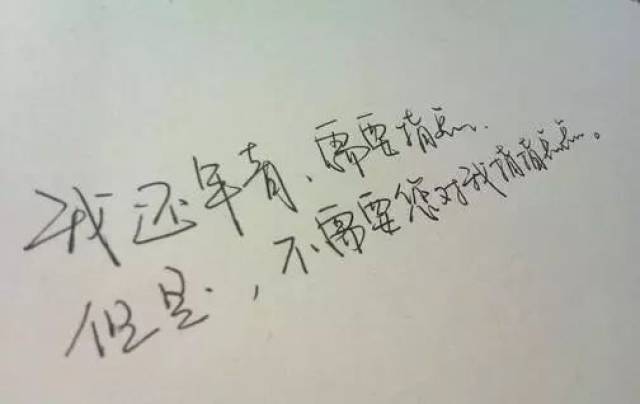 我还年青、需要指点、
但是,不需要您对我指指点点。